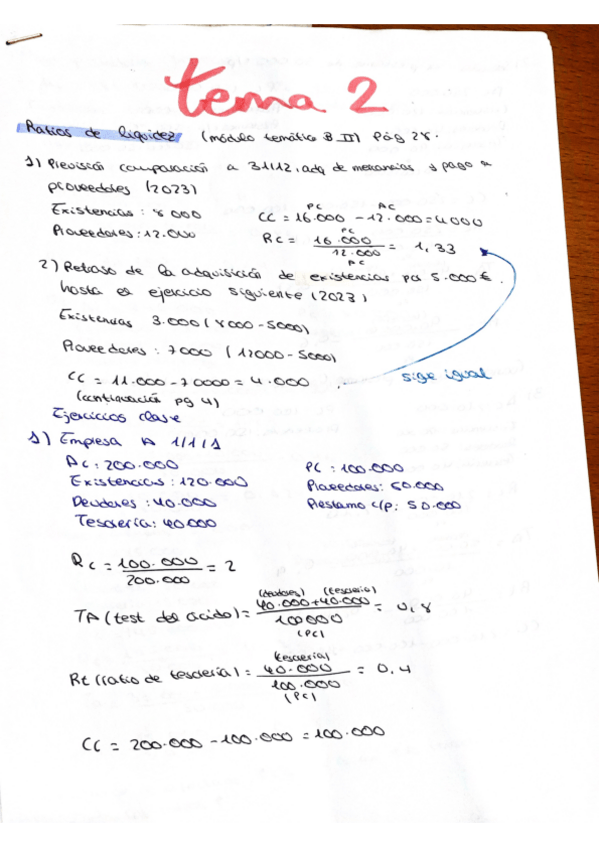 tema 2
Ratios de liquidez (módulo temático B II) Pág 28.
1) Previsión comparación a 31/12, adq de mercancias y pago a
proveedores (2023)
Existencias: 8000
Proveedores: 12.000
PC AC
CC = 16.000 - 12.000 = 4000
PC
RC = 16.000 / 12.000 = 1,33
AC
2) Retraso de la adquisición de existencias por 5.000€.
hasta el ejercicio siguiente (2023)
Existencias 3.000 (8000 - 5000)
Proveedores: 7000 (12000 - 5000)
CC = 11.000 - 70000 = 4.000
sige igual
(continuación pg 4)
Ejercicios clase
1) Empresa A 1/1/1
AC: 200.000
Existencias: 120.000
Deudores: 40.000
Tesorería: 40000
PC: 100.000
Proveedores: 50.000
Préstamo c/p: 50.000
RC = 100.000 / 200.000 = 2
(deudores) (tesorería)
TA (test del ácido) = 40.000+40.000 / 100000 = 0,8
(PC)
(tesorería)
Rt (ratio de tesorería) = 40.000 / 100.000 = 0,4
(PC)
CC = 200.000 - 100.000 = 100.000